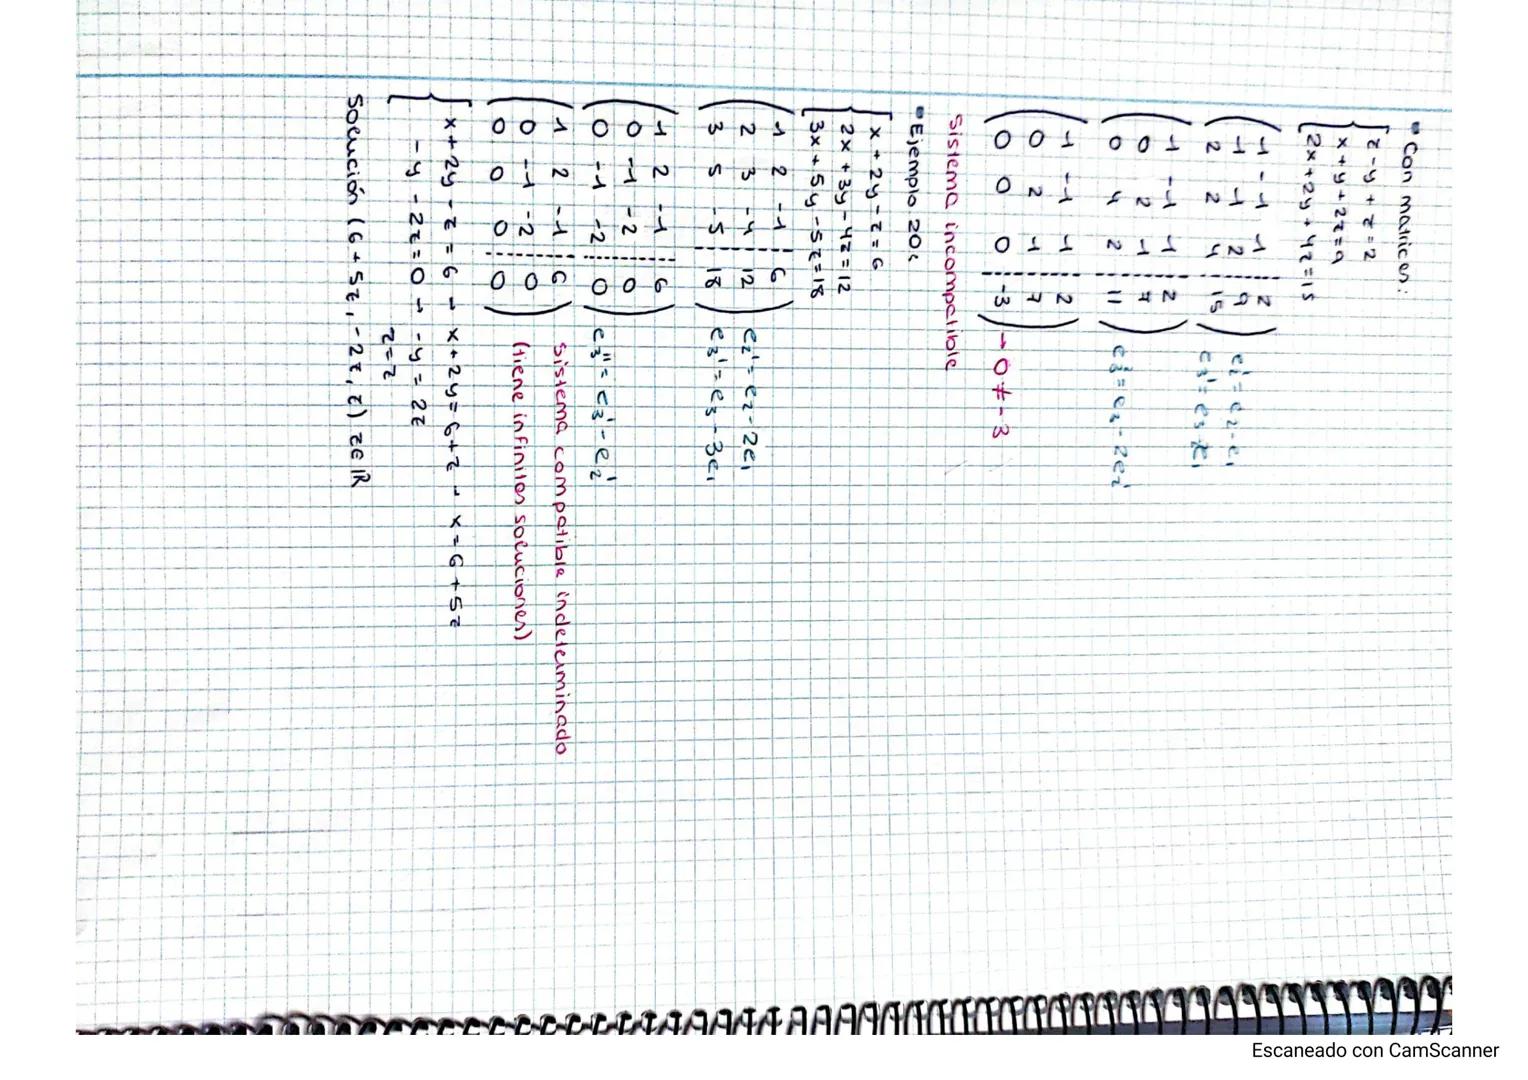 • Con matrices:
z - y + z = 2
x + y + 2z = 9
2x + 2y + 4z = 15
1 -1 1 2
1 1 2 9 e2' = e2 - e1
2 2 4 15 e3' = e3 - 2e1
1 -1 1 2
0 2 1 7
0 4 2 11 e3'' = e3' - 2e2'
1 -1 1 2
0 2 1 7
0 0 0 -3 → 0 ≠ -3
Sistema incompatible
• Ejemplo 20:
x + 2y - z = 6
2x + 3y - 4z = 12
3x + 5y - 5z = 18
1 2 -1 6
2 3 -4 12 e2' = e2 - 2e1
3 5 -5 18 e3' = e3 - 3e1
1 2 -1 6
0 -1 -2 0
0 -1 -2 0 e3'' = e3' - e2'
1 2 -1 6 Sistema compatible indeterminado
0 -1 -2 0 (tiene infinitas soluciones)
0 0 0 0
x + 2y - z = 6 → x + 2y = 6 + z → x = 6 + 5z
-y - 2z = 0 → -y = 2z
z = z
Solución (6 + 5z, -2z, z) z∈ℝ
Escaneado con CamScanner